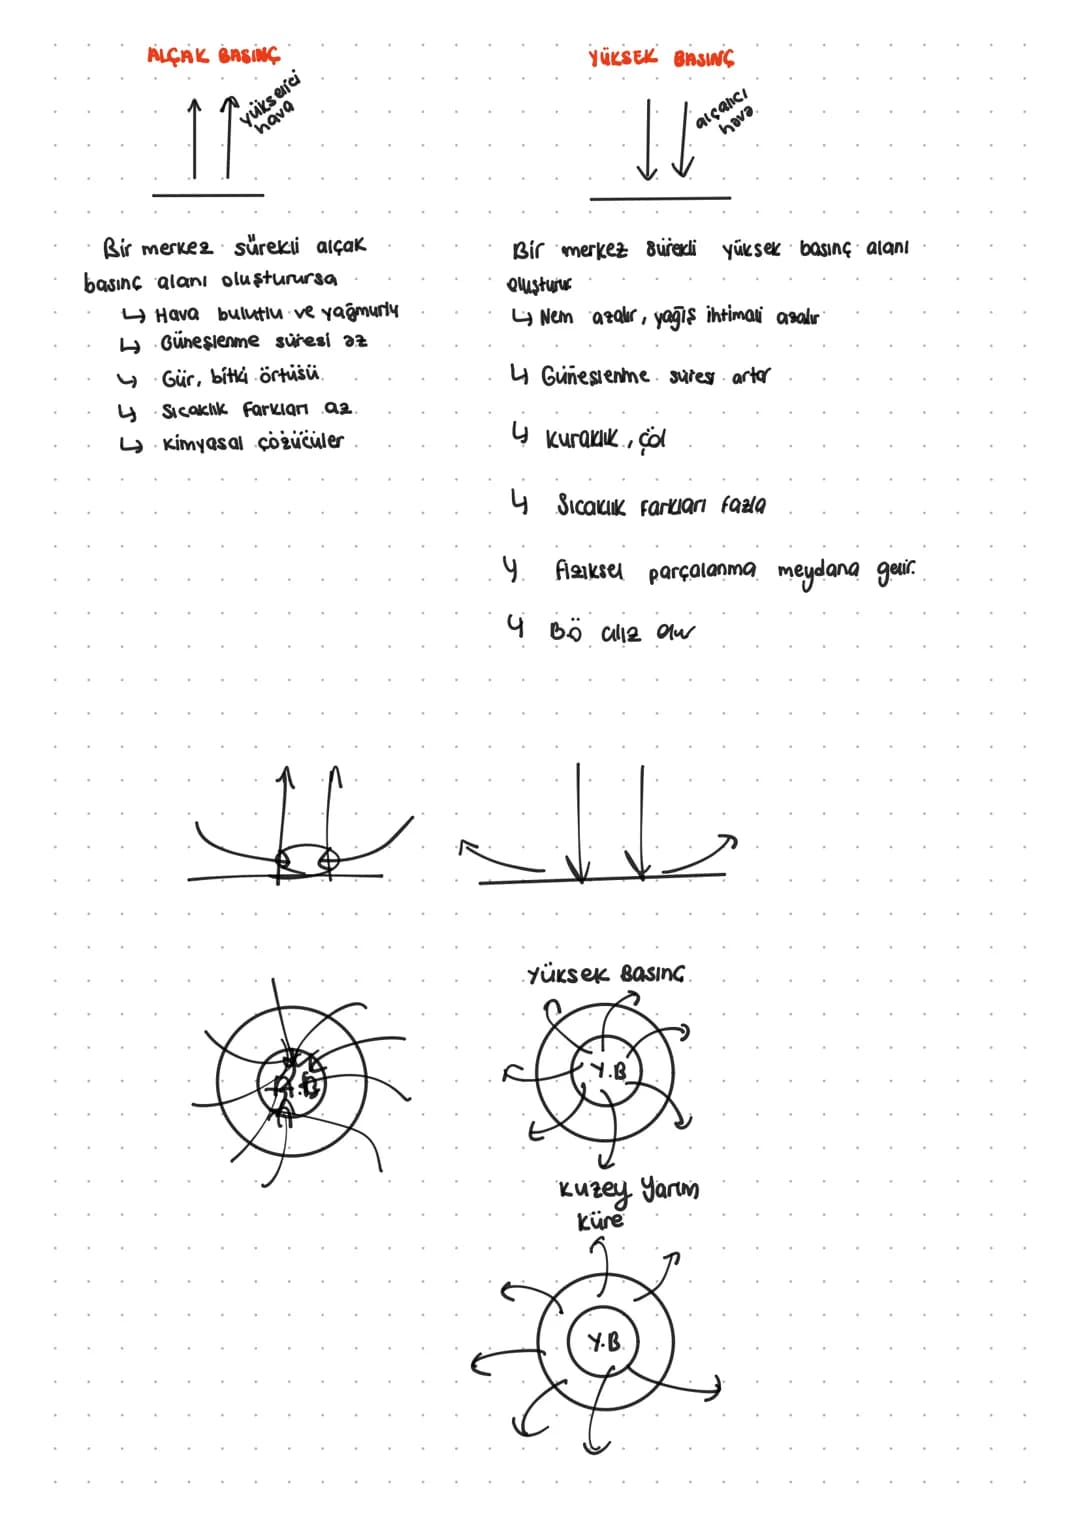 ALÇAK BASINÇ
yükselici
hava
Bir merkez sürekli alçak
basınç alanı oluşturursa
↳ Hava bulutlu ve yağmurlu
↳ Güneşlenme süresi az
↳ Gür, bitki örtüsü
↳ Sıcaklık Farkları az
↳ Kimyasal çözücüler
YÜKSEK BASINÇ
alçalıcı
hava
Bir merkez sürekli yüksek basınç alanı
oluşturur
↳ Nem azalır, yağış ihtimali azalır
↳ Güneşlenme süresi artar
↳ Kuraklık, çöl
↳ Sıcaklık Farkları fazla
↳ fiziksel parçalanma meydana gelir.
↳ Bö cılız olur
A.B
Yüksek Basınç
Y.B
Kuzey Yarım
Küre
Y.B